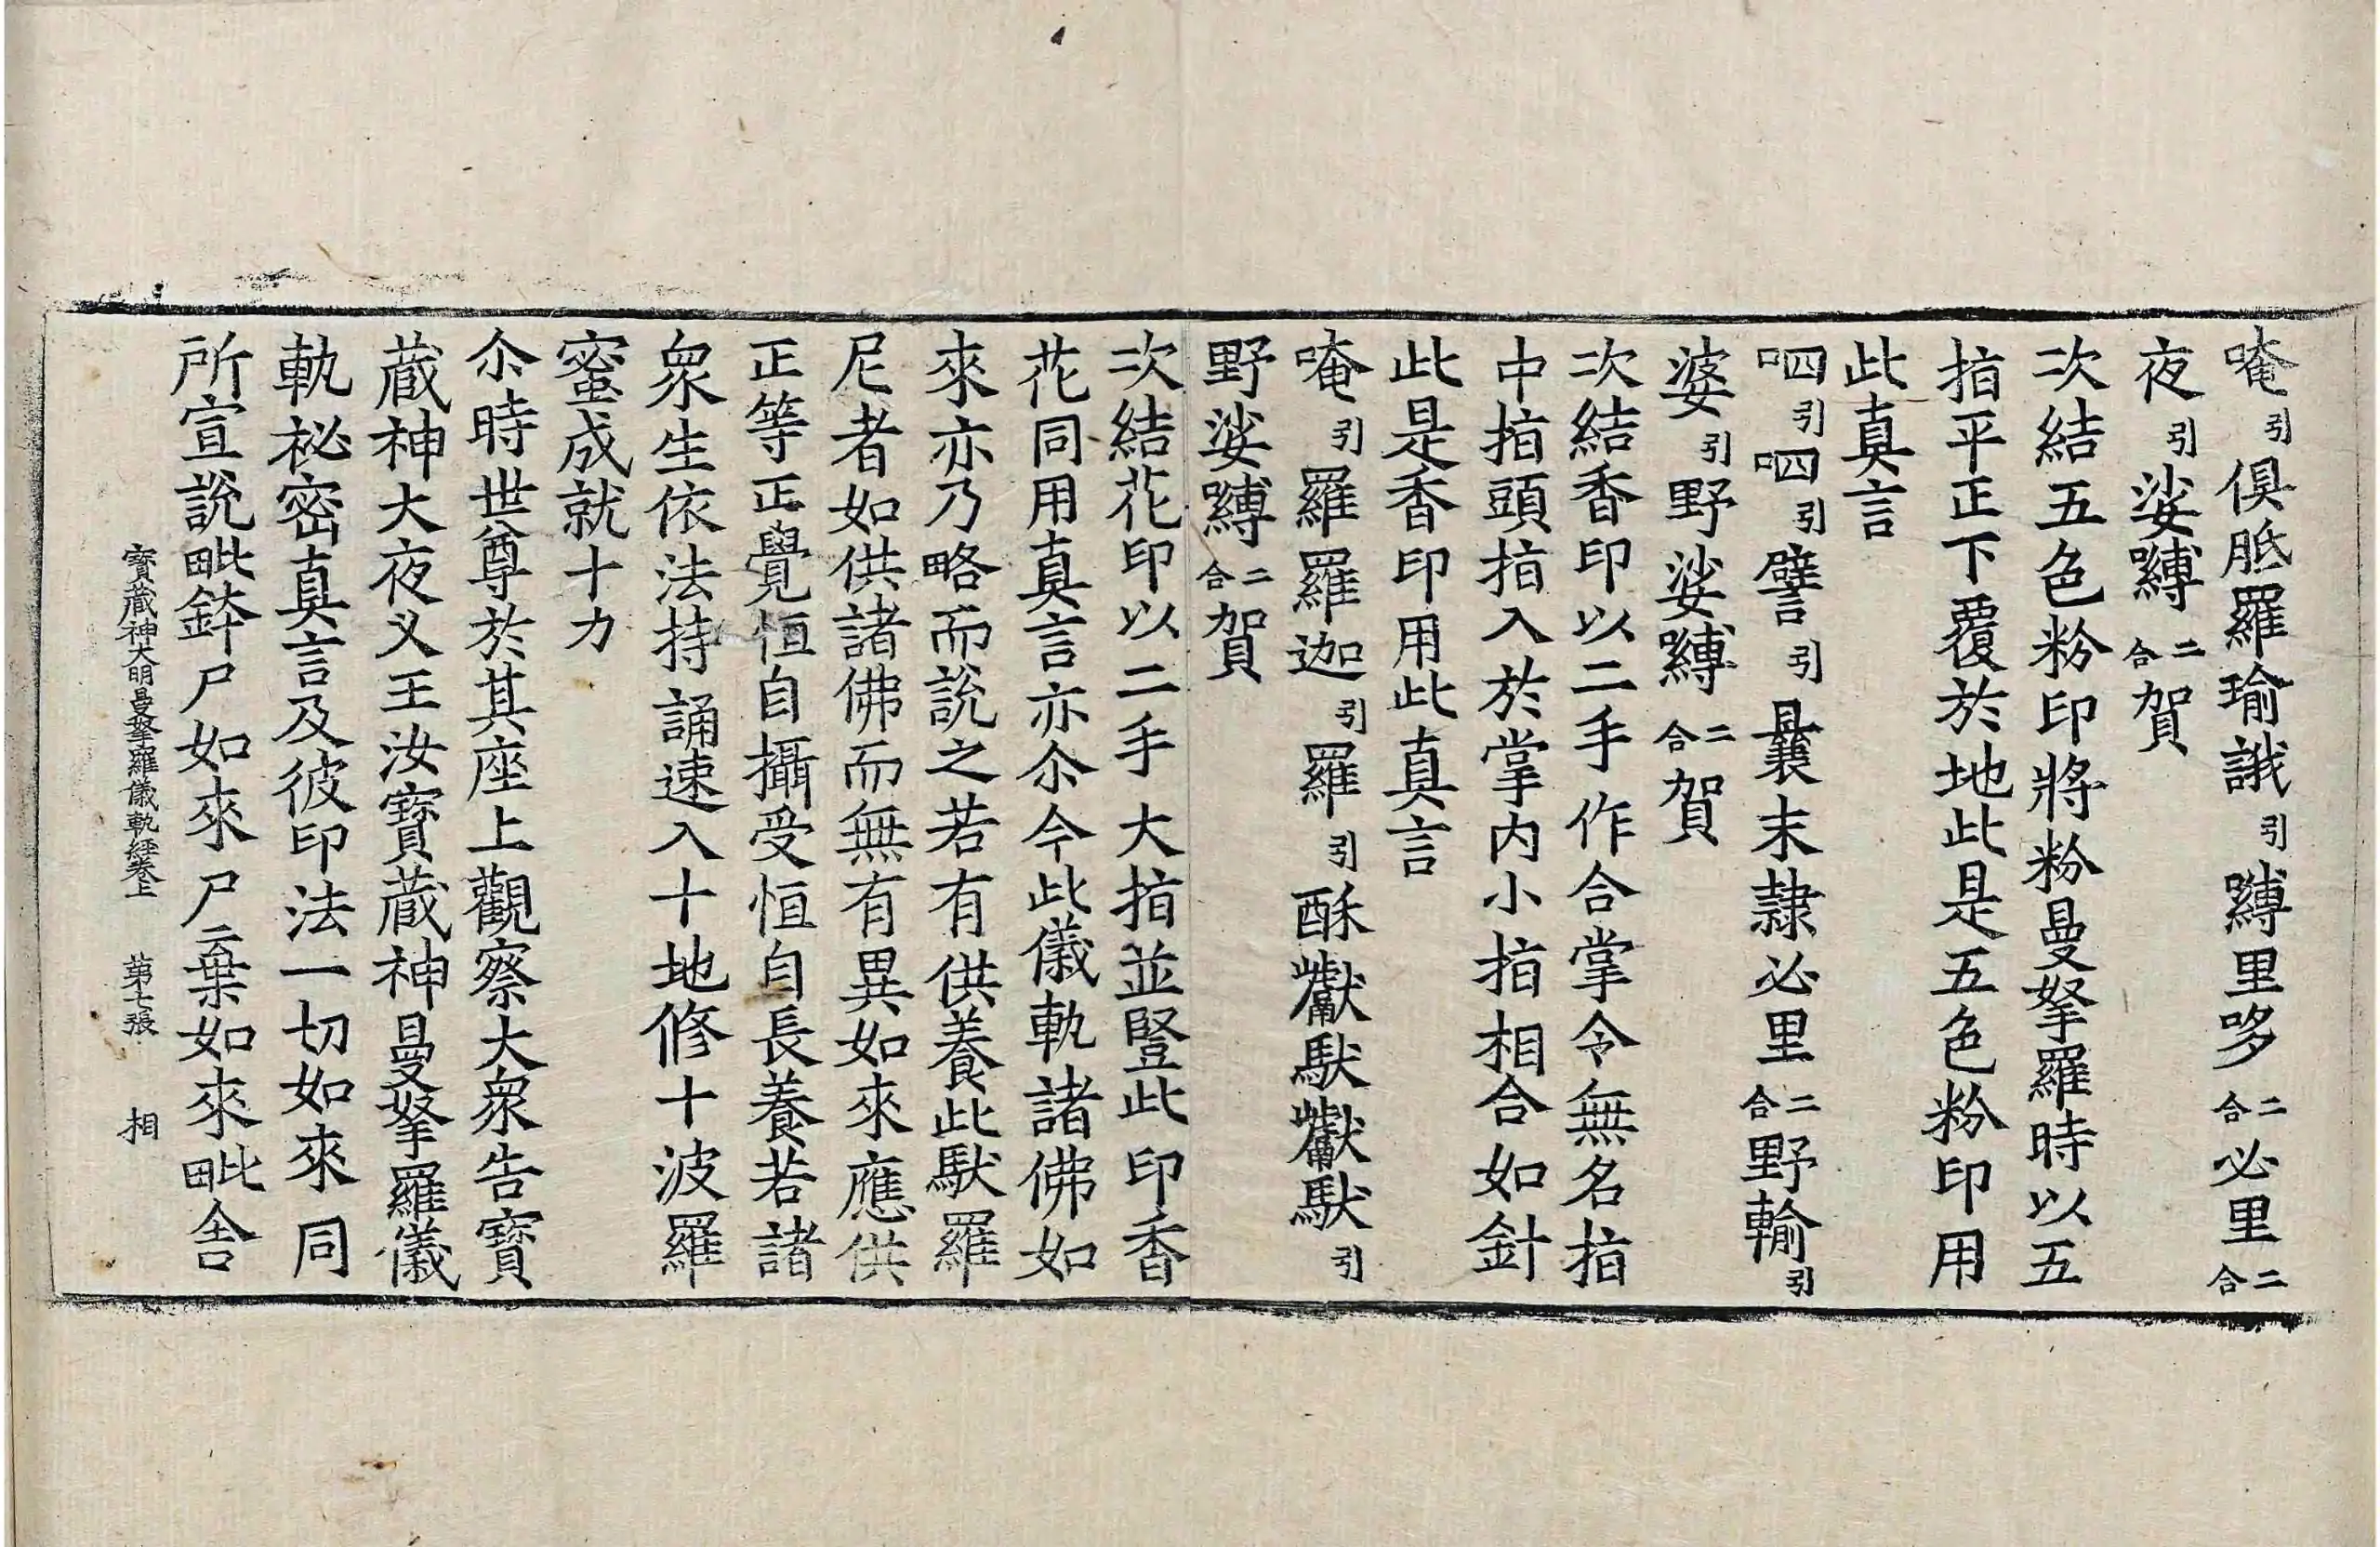 唵引俱胝羅瑜誐引嚩里哆二合必里二合
夜引娑嚩二合賀
次結五色粉印將粉曼拏羅時以五
指平正下覆於地此是五色粉印用
此真言
呬引呬引譬引曩末隷必里二合野輸引
婆引野娑嚩二合賀
次結香印以二手作合掌令無名指
中指頭指入於掌内小指相合如針
此是香印用此真言
唵引羅羅迦引羅引酥巘馱巘馱引
野娑嚩二合賀
次結花印以二手大指並竪此印香
花同用真言亦尒今此儀軌諸佛如
來亦乃略而說之若有供養此馱羅
尼者如供諸佛而無有異如來應供
正等正覺恒自攝受恒自長養若諸
衆生依法持誦速入十地修十波羅
蜜成就十力
尒時世尊於其座上觀察大衆告寶
藏神大夜义王汝寶藏神曼拏羅儀
軌祕密真言及彼印法一切如來同
所宣說毗鉢尸如來尸棄如來毗舍
寶藏神大明曼拏羅儀軌經卷上 第七張 相